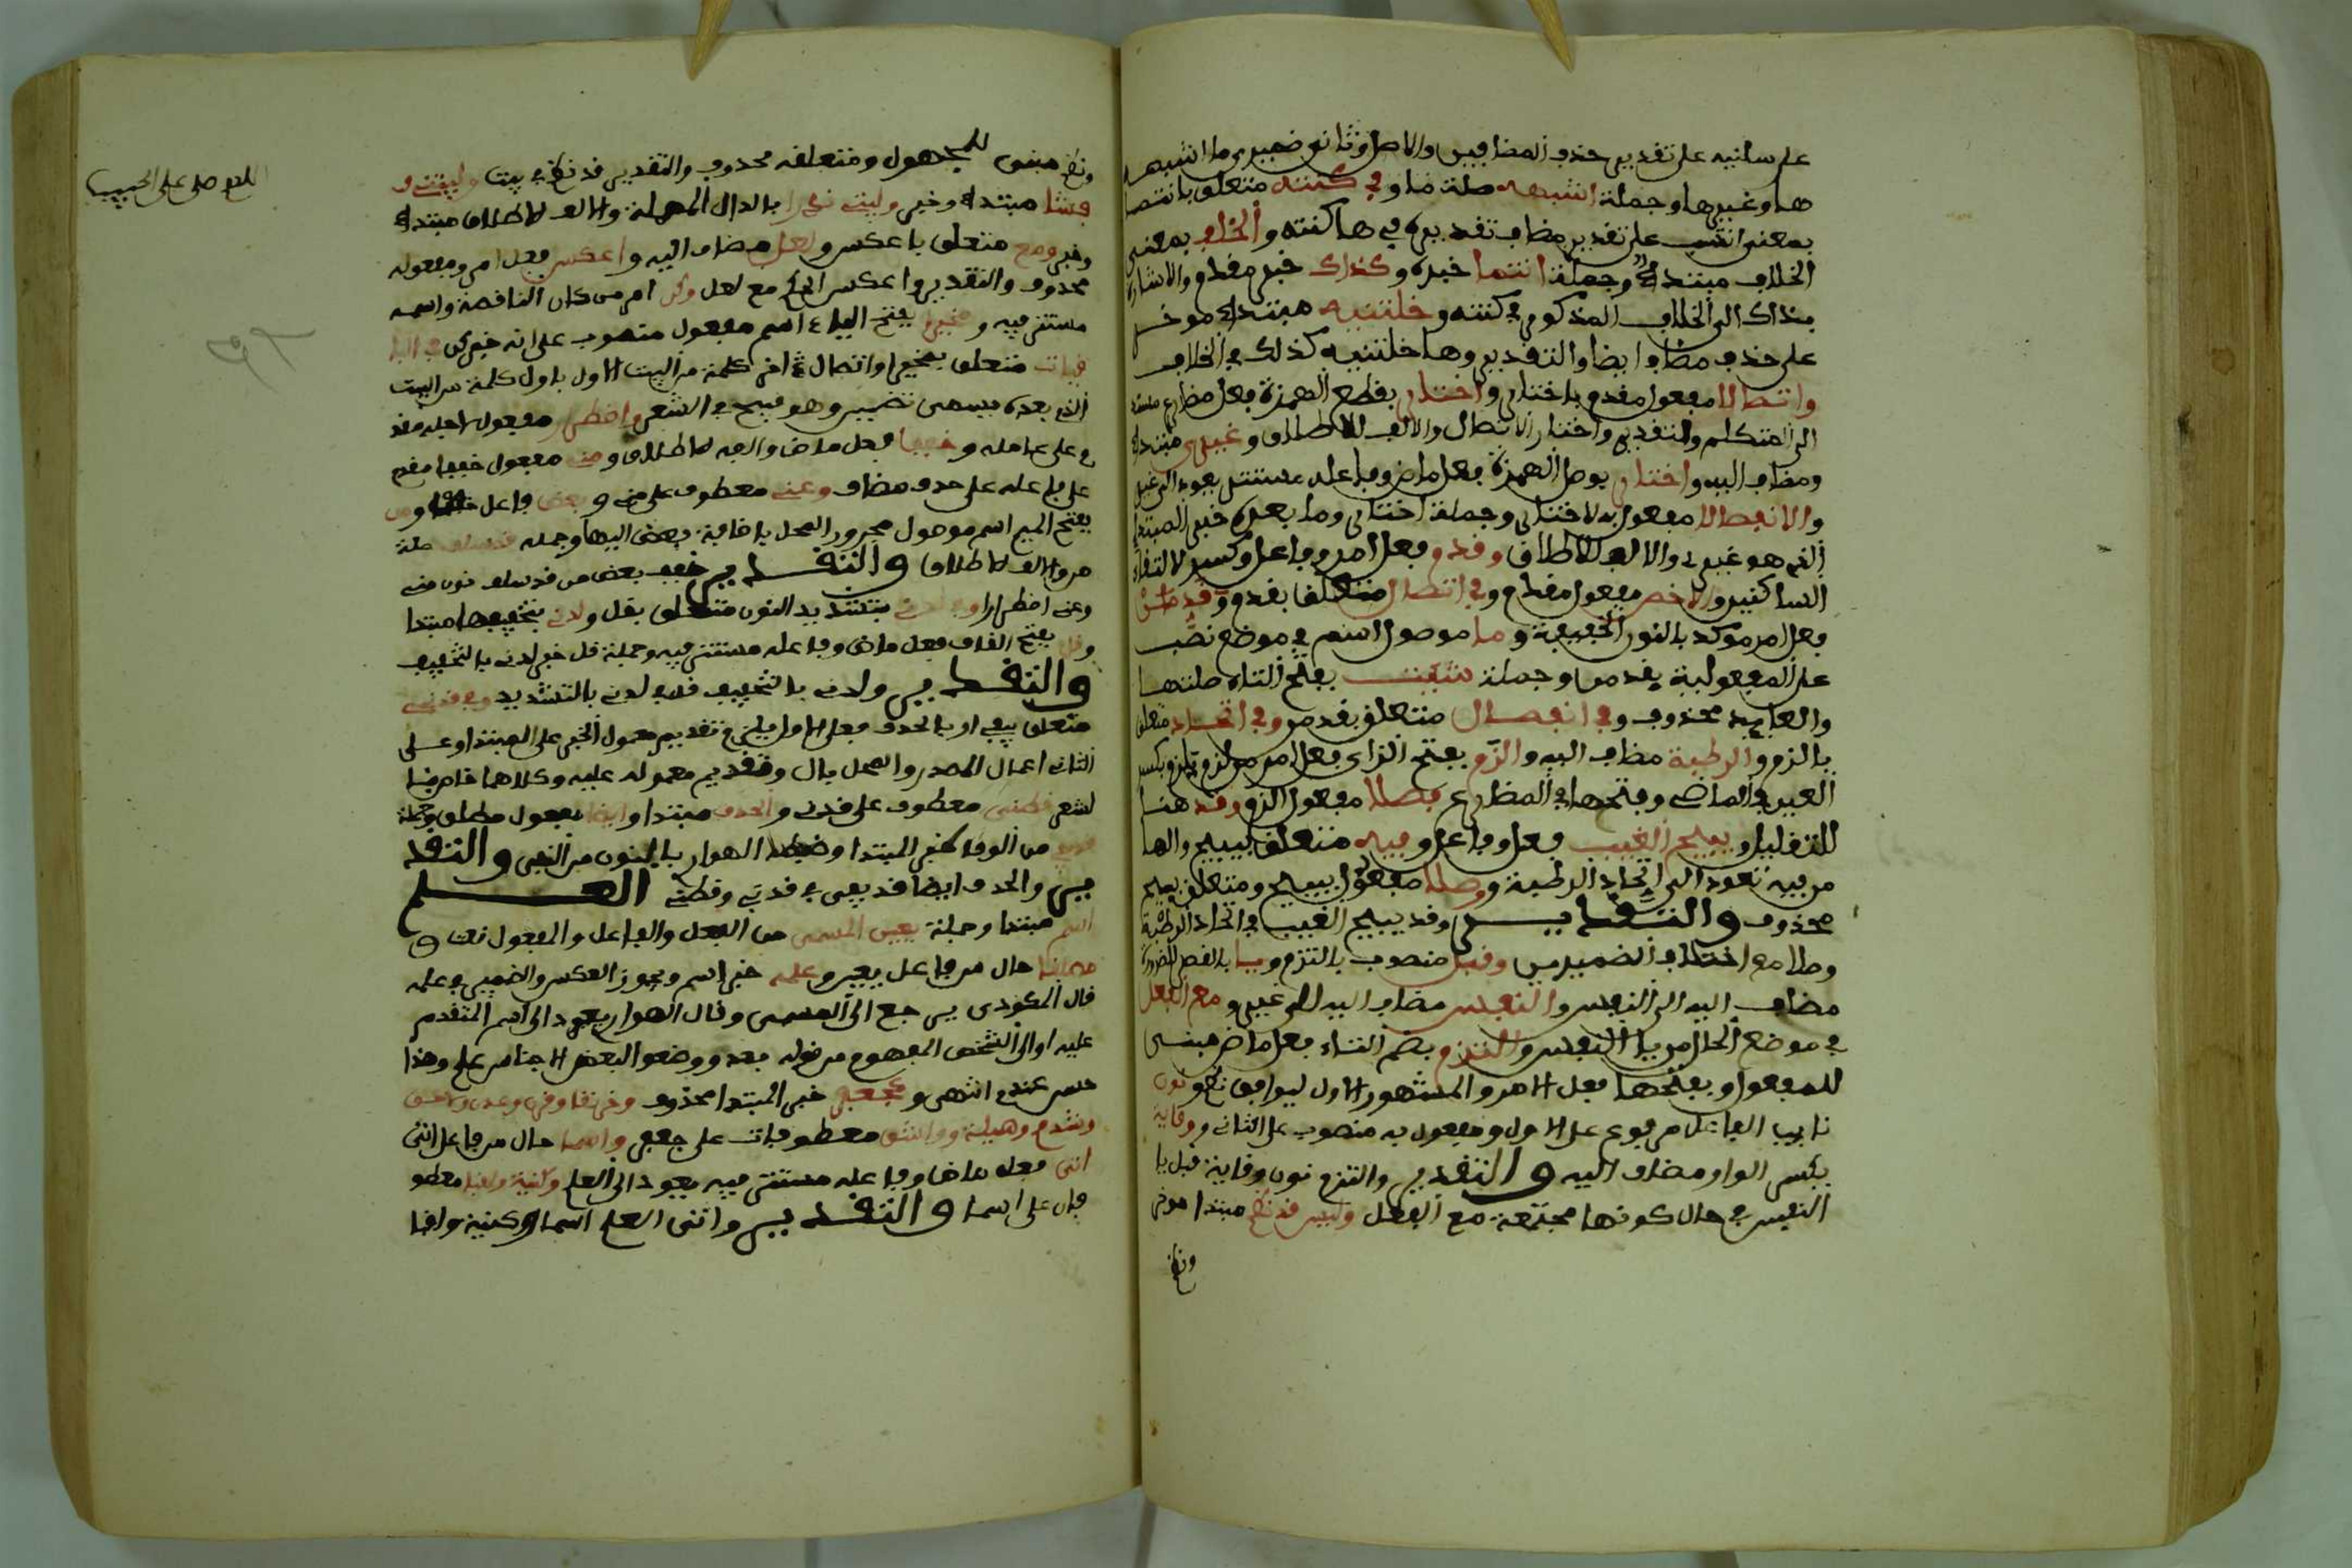 على سلنيه على تقدير حذف المضافين والاصل وثاني ضميري ما اشبه
ها وغيرها وجملة اشبهه صلة ما وفي كنته متعلق بانتما
بمعنى انتسب على تقدير مضاف تقديره في ها كنته والخلف بمعنى
الخلاف مبتدا وجملة انتما خبره وكذاك خبر مقدم والاشارة
بذاك الى الخلاف المذكور في كنته وخلتنيه مبتدا موخر
على حذف مضاف ايضا والتقدير وها خلتنيه كذلك في الخلاف
واتصالا مفعول مقدم باختار واختار بقطع الهمزة فعل مضارع مسند
الى المتكلم والتقدير واختار الاتصال والالف للاطلاق وغيري مبتدا
ومضاف اليه واختار بوصل الهمزة فعل ماض وفاعله مستتر يعود الى غير
والانفصالا مفعول به لاختار وجملة اختار وما بعده خبر المبتدا
الذي هو غيري والالف للاطلاق وقدم فعل امر وفاعل وكسر لالتقاء
الساكنين والاخص مفعول مقدم وفي اتصال متعلق بقدم وقدمن
فعل امر موكد بالنون الخفيفة وما موصول اسم في موضع نصب
على المفعولية بقدمن وجملة شئت بفتح التاء صلتها
والعايد محذوف وفي انفصال متعلق بقدمن وفي اتحاد متعلق
بالزم والرتبة مضاف اليه والزم بفتح الزاي فعل امر من لزم يلزم بكسر
العين في الماضي وفتحها في المضارع فصلا مفعول الزم وقد هنا
للتقليل ويبيح الغيب فعل وفاعل وفيه متعلق بيبيح والها
من فيه تعود الى اتحاد الرتبة ووصلا مفعول يبيح ومتعلق يبيح
محذوف والتقدير وقد يبيح الغيب في اتحاد الرتبة
وصلا مع اختلاف الضميرين وقبل منصوب بالتزم ويا بالقصر للضرورة
مضاف اليه الى النفس والنفس مضاف اليه الى غير ومع الفعل
في موضع الحال من يا النفس والتزم بضم التاء فعل ماض مبني
للمفعول وبفتحها فعل الامر والمشهور الاول ليوافق نظم ونون
نايب الفاعل مرفوع على الاول ومفعول به منصوب على الثاني ووقاية
بكسر الواو مضاف اليه والتقدير والتزم نون وقاية قبل يا
النفس في حال كونها مجتمعة مع الفعل وليس قد نظم مبتدا موخر
ونظم
ونظم مبني للمجهول ومتعلقه محذوف والتقدير قد نظم في بيت وليتني و
فشا مبتدا وخبر وليتي ندرا بالدال المهملة والالف للاطلاق مبتدا
وخبر ومع متعلق باعكس ولعل مضاف اليه واعكس فعل امر ومفعوله
محذوف والتقدير واعكس الحكم مع لعل وكن امر من كان الناقصة واسمه
مستتر فيه ومخيرا بفتح الياء اسم مفعول منصوب على انه خبر كن في البا
قيات متعلق بمخيرا واتصال اخر كلمة من البيت الاول باول كلمة من البيت
الذي بعده يسمى تضمين وهو قبيح في الشعر واضطرارا مفعول لاجله مقد
م على عامله وخففا فعل ماض والفه للاطلاق ومني مفعول خففا مقدم
على فاعله على حذف مضاف وعني معطوف على مني وبعض فاعل خففا ومن
بفتح الميم اسم موصول مجرور المحل باضافة بعض اليها وجملة قد سلفا صلة
من والالف للاطلاق والتقدير خفف بعض من قد سلف نون مني
وعني اضطرارا وفي لدني بتشديد النون متعلق بقل ولدني بتخفيفها مبتدا
وقل بفتح القاف فعل ماض وفاعله مستتر فيه وجملة قل خبر لدني بالتخفيف
والتقدير ولدني بالتخفيف قل في لدني بالتشديد وفي قدني
متعلق بيفي او بالحذف فعلى الاول يلزم تقديم معمول الخبر على المبتدا وعلى
الثاني اعمال المصدر والمحل بال وتقديم معموله عليه وكلاهما خاص با
لشعر قطني معطوف على قدني والحذف مبتدا وايضا مفعول مطلق وجملة
قد يفي من الوفا خبر المبتدا وضبطه الهوار بالنون من النفي والتقد
ير والحذف ايضا قد يفي في قدني وقطني العلم
اسم مبتدا وجملة يعين المسمى من الفعل والفاعل والمفعول نعت له
مطلقا حال من فاعل يعين وعلمه خبر اسم ويجوز العكس والضمير في علمه
قال المكودي يرجع الى المسمى وقال الهوار يعود الى اسم المتقدم
عليه او الى الشخص المفهوم من قوله بعد ووضعوا لبعض الاجناس علم وهذا
حسن عندي انتهى وكجعفر خبر المبتدا محذوف وخرنقا وقرن وعدن ولاحق
وشذقم وهيلة وواشق معطوفات على جعفر واسما حال من فاعل اتى
اتى فعل ماض وفاعله مستتر فيه يعود الى العلم وكنية ولقبا معطو
فان على اسما والتقدير واتى العلم اسما وكنية ولقبا
اللهم صل على الحبيب